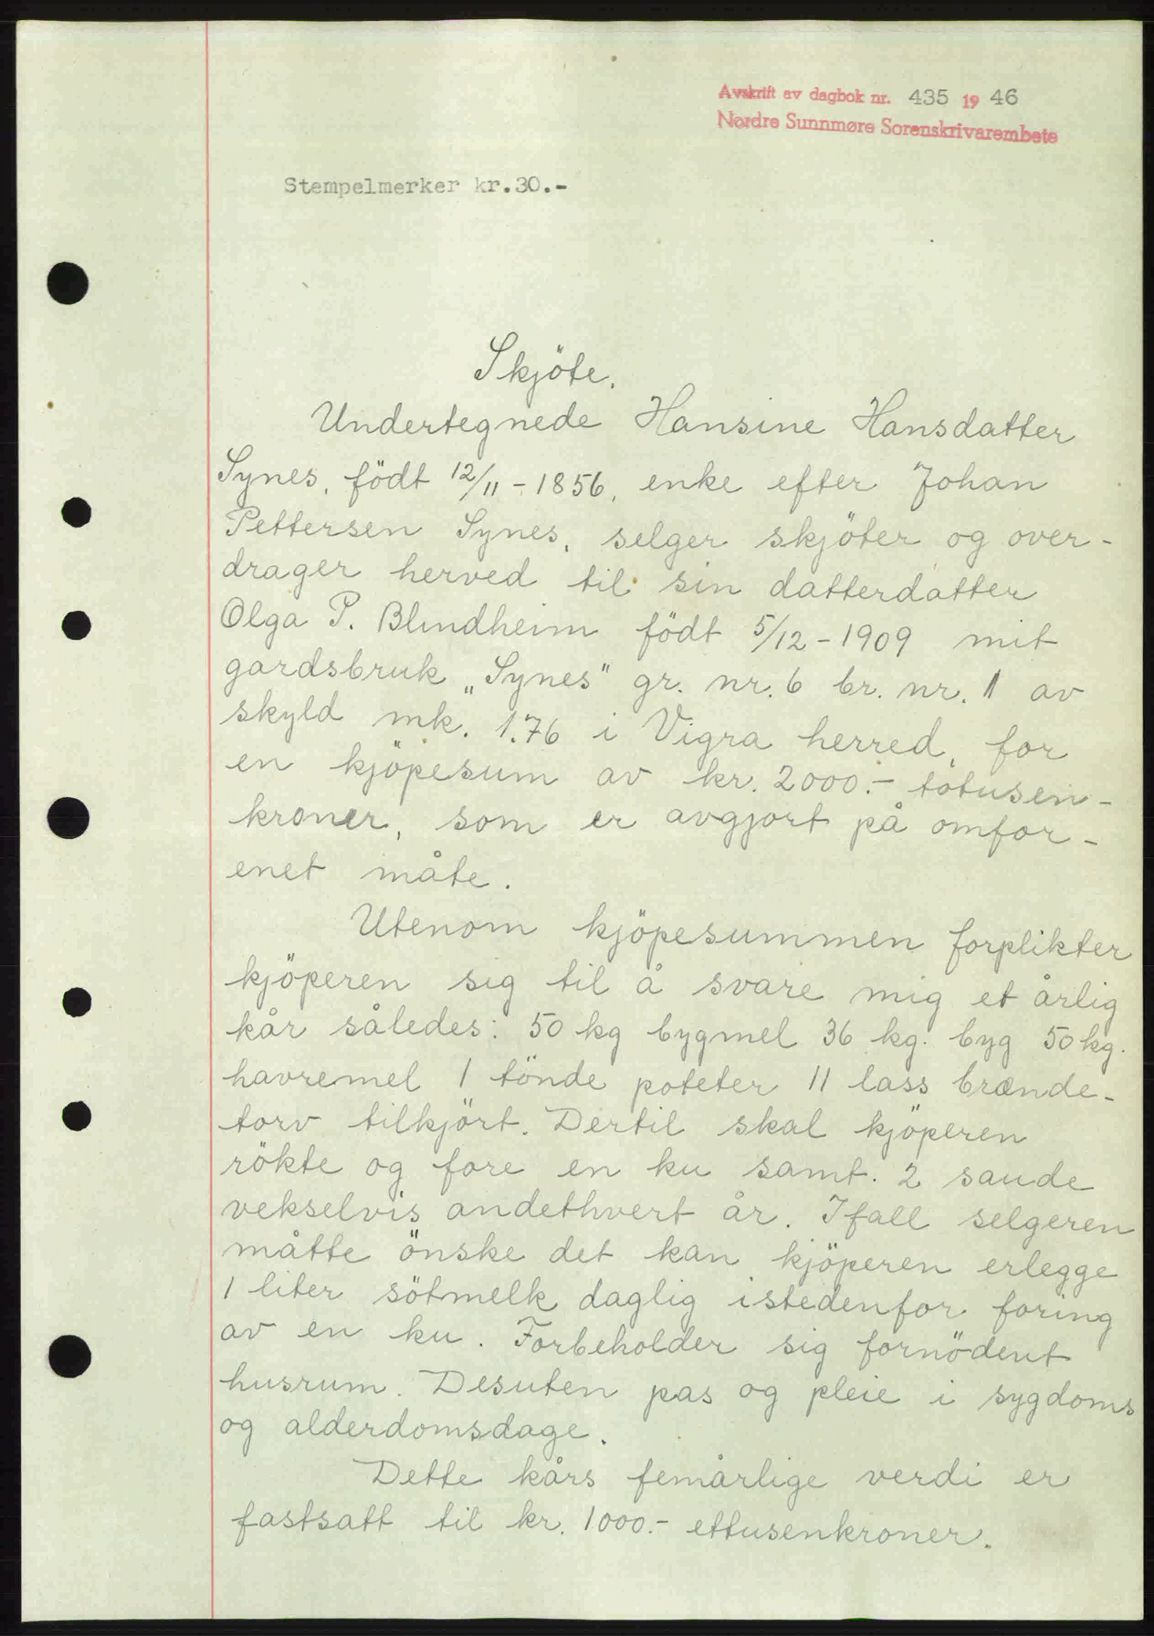 Avskrift av dagbok nr. 435 19 46
Nordre Sunnmøre Sorenskrivarembete
Stempelmerker kr.30.-
Skjöte.
Undertegnede Hansine Hansdatter
Synes, födt 12/11 - 1856, enke efter Johan
Pettersen Synes, selger skjöter og over-
drager herved til sin datterdatter
Olga P. Blindheim födt 5/12 - 1909 mit
gardsbruk „Synes" gr. nr. 6 br. nr. 11 av
skyld mk. 1.76 i Vigra herred, for
en kjöpesum av kr. 2000.- totusen-
kroner, som er avgjort på omfor-
enet måte.
Utenom kjöpesummen forplikter
kjöperen sig til å svare mig et årlig
kår således: 50 kg bygmel 36 kg. byg 50 kg.
havremel 1 tönde poteter 11 lass brænde-
torv tilkjört. Dertil skal kjöperen
rökte og fore en ku samt. 2 saude
vekselvis andethvert år. Ifall selgeren
måtte önske det kan kjöperen erlegge
1 liter sötmelk daglig istedenfor foring
av en ku. Forbeholder sig fornödent
husrum. Desuten pas og pleie i sygdoms
og alderdomsdage.
Dette kårs femårlige verdi er
fastsatt til kr. 1000.- ettusenkroner.